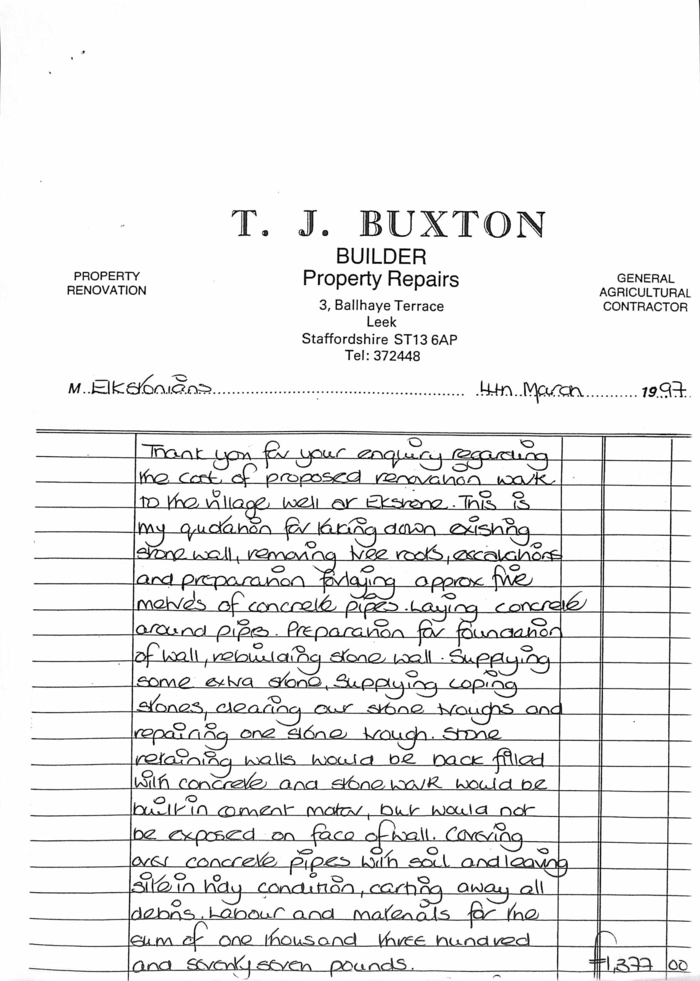 T. J. BUXTON
BUILDER
Property Repairs
PROPERTY
RENOVATION
GENERAL
AGRICULTURAL
CONTRACTOR
3, Ballhaye Terrace
Leek
Staffordshire ST13 6AP
Tel: 372448
M. Elkstonians 4th March 1997
Thank you for your enquiry regarding
the cost of proposed renovation work
to the village well at Ekstone. This is
my quotation for taking down existing
stone wall, removing tree roots, escalations
and preparation for laying approx five
metres of concrete pipes. Laying concrete
around pipes. Preparation for foundation
of wall, rebuilding stone wall. Supplying
some extra stone, Supplying coping
stones, clearing out stone troughs and
repairing one stone trough. Stone
retaining walls would be back filled
with concrete and stonework would be
built in cement motar, but would not
be exposed on face of wall. Covering
over concrete pipes with soil and leaving
site in tidy condition, carting away all
debris. Labour and materials for the
sum of one thousand three hundred
and seventy seven pounds. £1,377 00